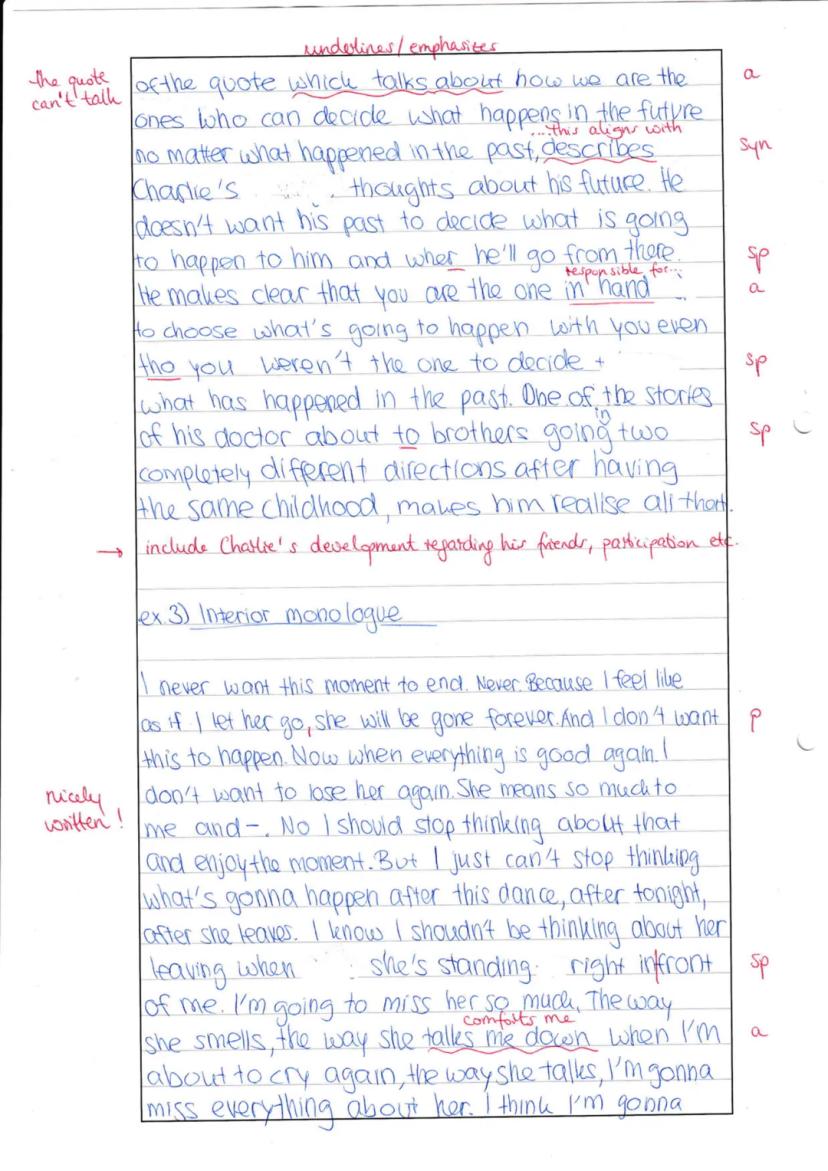 underlines/emphasites
the quote
can't talk
of the quote which talks about how we are the
a
ones who can decide what happens in the future
...this aligns with
no matter what happened in the past, describes
syn
Charlie's thoughts about his future. He
doesn't want his past to decide what is going
to happen to him and wher he'll go from there.
sp
responsible for...
He makes clear that you are the one in hand
a
to choose what's going to happen with you even
tho you weren't the one to decide
sp
what has happened in the past. One of the stories
in
of his doctor about to brothers going two
sp
completely different directions after having
the same childhood, makes him realise all that.
→ include Charlie's development regarding his friends, participation etc.
ex.3) Interior monologue
I never want this moment to end. Never. Because I feel like
as if I let her go, she will be gone forever. And I don't want
p
this to happen. Now when everything is good again. I
don't want to lose her again. She means so much to
nicely
written!
me and-. No I should stop thinking about that
and enjoy the moment. But I just can't stop thinking
what's gonna happen after this dance, after tonight,
after she leaves. I know I shoudn't be thinking about her
leaving when she's standing right infront
sp
of me. I'm going to miss her so much. The way
comforts me
she smells, the way she talks me down when I'm
a
about to cry again, the way she talks, I'm gonna
miss everything about her. I think I'm gonna